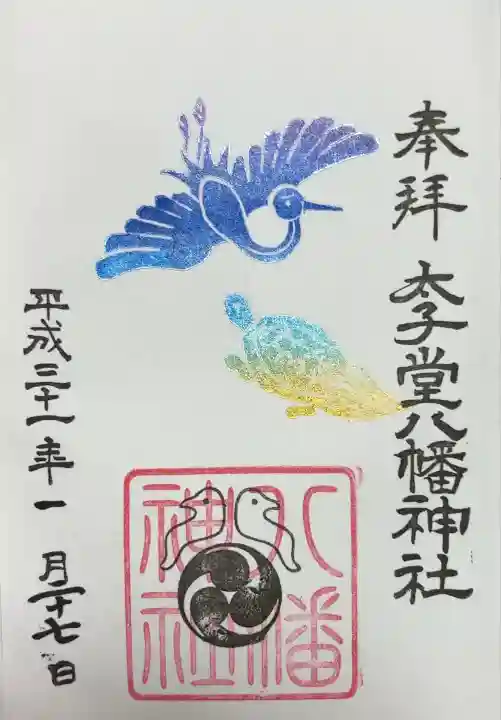 奉拝
太子堂八幡神社
平成三十一年一月二十七日
八幡
神社